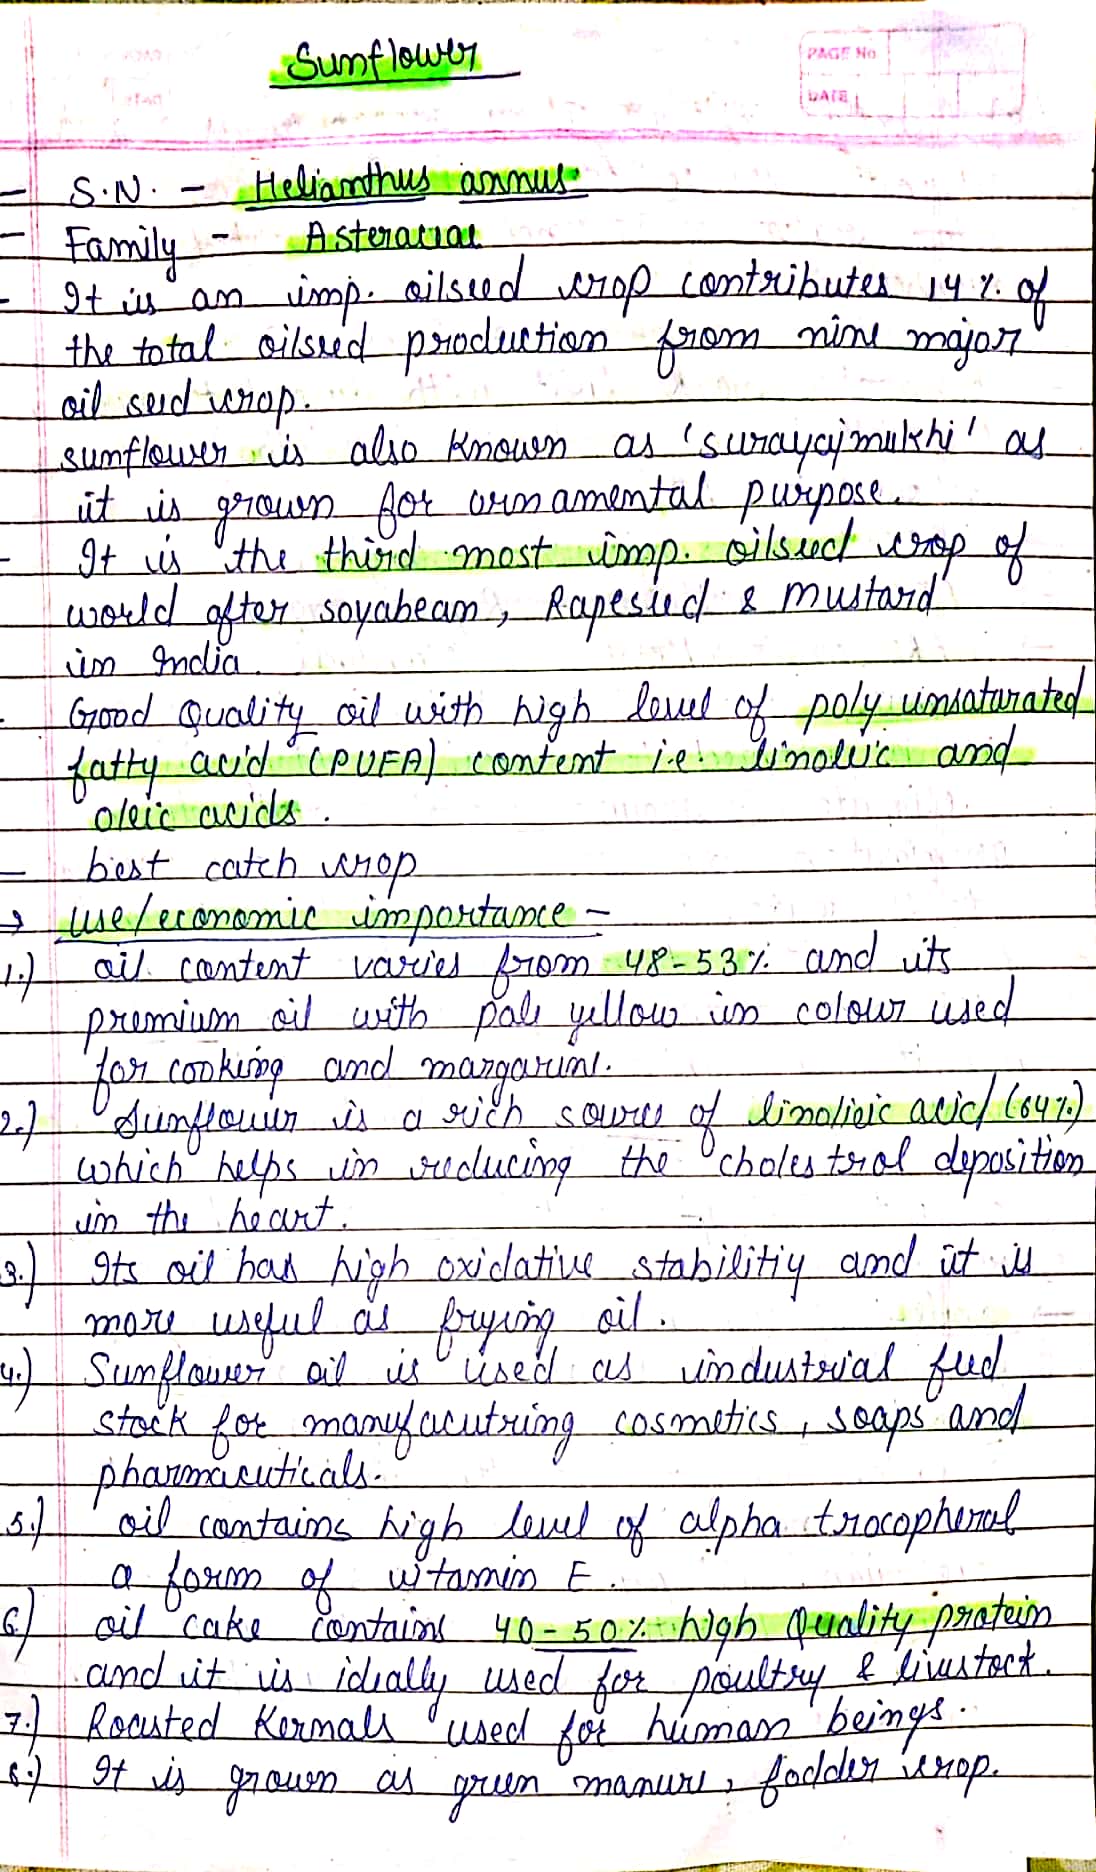 Sunflower
PAGE No
DATE
- S.N. - Helianthus annus.
- Family - Asteraciae
- It is an imp. oilseed crop contributes 14% of
the total oilseed production from nine major
oil seed crop.
sunflower is also known as 'surayajmukhi' as
it is grown for ornamental purpose.
- It is the third most imp. oilseed crop of
world after soyabean, Rapeseed & mustard
in India.
- Good Quality oil with high level of poly unsaturated
fatty acid (PUFA) content i.e. linoleic and
oleic acids.
- best catch crop
→ use/economic importance -
1.) oil content varies from 48-53% and its
premium oil with pale yellow in colour used
for cooking and margarine.
2.) Sunflower is a rich source of linolieic acid (64%)
which helps in reducing the cholestrol deposition
in the heart.
3.) Its oil has high oxidative stabilitiy and it is
more useful as frying oil.
4.) Sunflower oil is used as industrial feed
stock for manufacutring cosmetics, soaps and
pharmaceuticals.
5.) oil contains high level of alpha trocopherol
a form of vitamin E.
6.) oil cake contains 40-50% high Quality protein
and it is ideally used for poultry & livestock.
7.) Roasted Kernals used for human beings.
8.) It is grown as green manure, fodder crop.